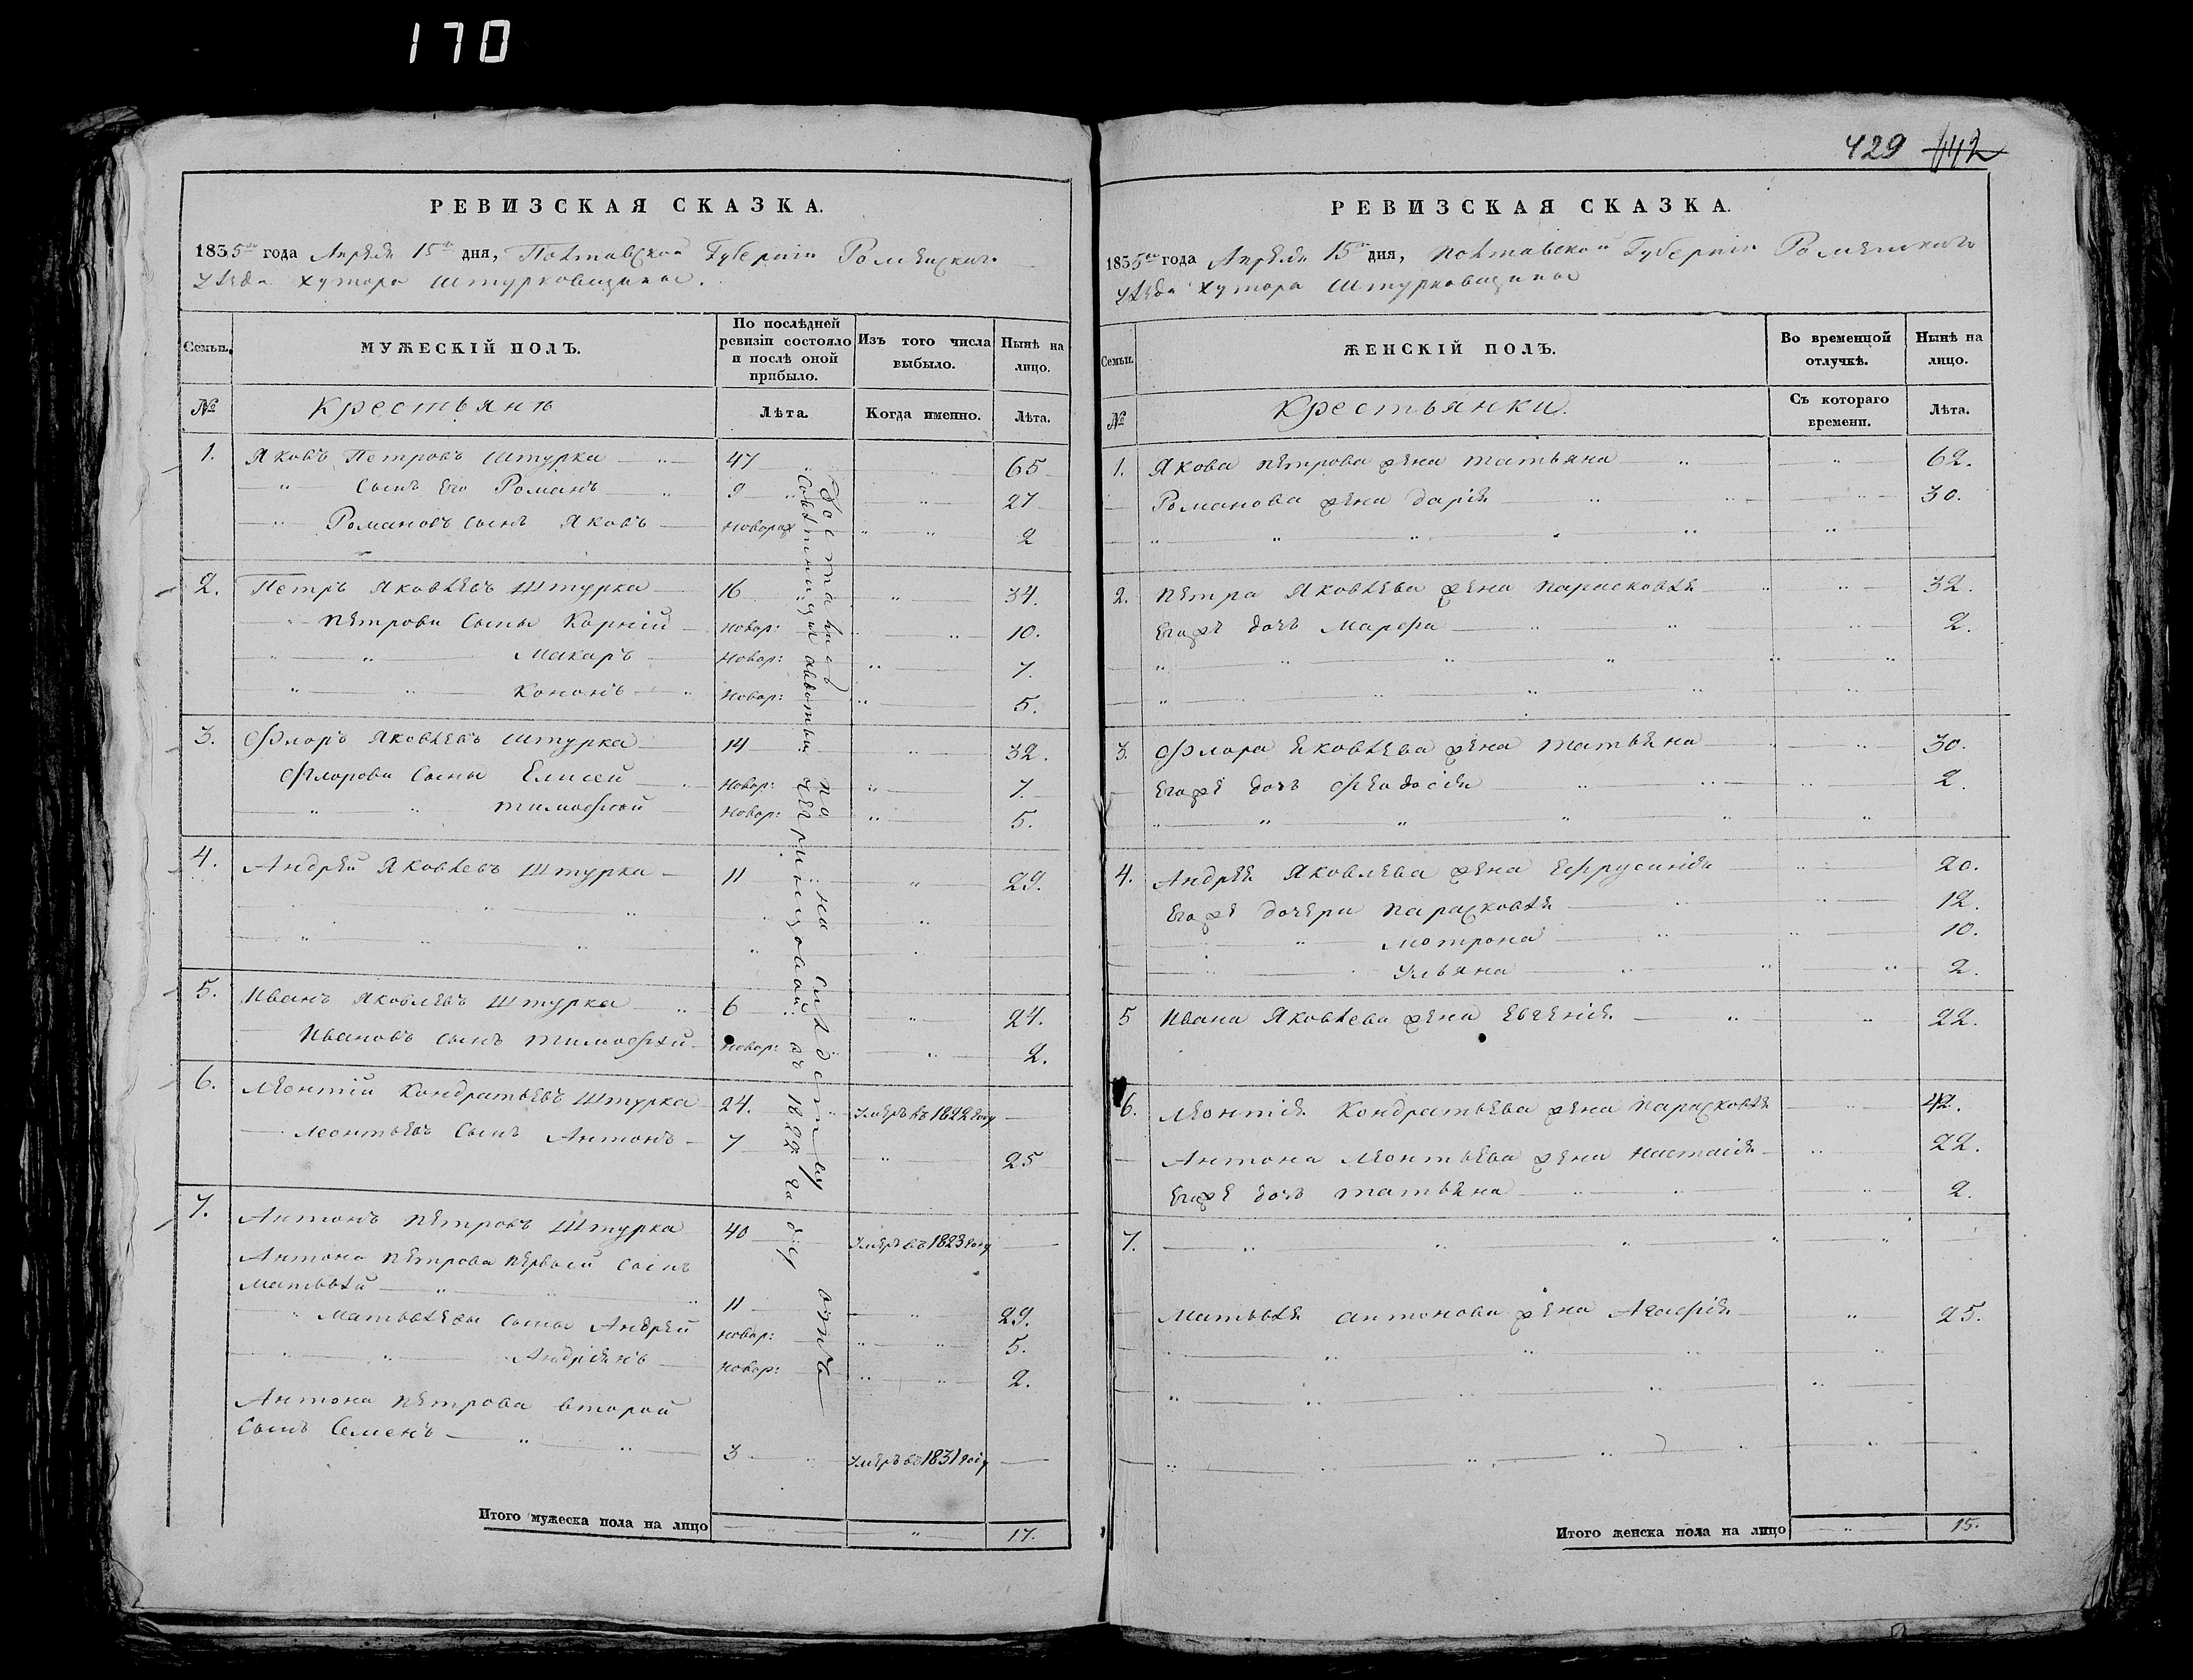 170
429 442
РЕВИЗСКАЯ СКАЗКА.
1835го года Апреля 15го дня, Полтавской Губернии Роменскаго
уезда хутора Штурковщины.
Семьи.
МУЖЕСКІЙ ПОЛЪ.
По послѣдней ревизіи состояло и послѣ оной прибыло.
Изъ того числа выбыло.
Нынѣ на лицо.
№
Крестьянъ
Лѣта.
Когда именно.
Лѣта.
1. Яковъ Петровъ Штурка 47 65
сынъ его Романъ 9 27
Романовъ сынъ Яковъ новорож 2
2. Петръ Яковлевъ Штурка 16 34.
Петрови сыны Корній новор: 10.
Макаръ новор: 7.
Кононъ новор: 5.
3. Флоръ Яковлевъ Штурка 14 32.
Флорови сыны Елисей новор: 7.
Тимофей новор: 5.
4. Андрей Яковлевъ Штурка 11 29.
5. Иванъ Яковлевъ Штурка 6 24.
Ивановъ сынъ Тимофей новор: 2.
6. Леонтій Кондратьевъ Штурка 24. умеръ въ 1822 году
Леонтьевъ сынъ Антонъ 7 25
7. Антонъ Петровъ Штурка 40 умеръ въ 1823 году
Антона Петрова первый сынъ
Матвѣй 11 29.
Матвѣевы сыны Андрей новор: 5.
Андріянъ новор: 2.
Антона Петрова второй
сынъ Семенъ 3 умеръ въ 1831 году
Достались по наследству отъ
въ 1822м году
Итого мужеска пола на лицо 17.
РЕВИЗСКАЯ СКАЗКА.
1835го года Апреля 15го дня, Полтавской Губерніи Роменскаго
уезда хутора Штурковщины
Семьи.
ЖЕНСКІЙ ПОЛЪ.
Во временной отлучкѣ.
Нынѣ на лицо.
№
Крестьянки.
Съ котораго времени.
Лѣта.
1. Якова Петрова жена Татьяна 62.
Романова жена Дарія 30.
2. Петра Яковлева жена Парасковья 32.
Егоже дочь Марфа 2.
3. Флора Яковлева жена Татьяна 30.
Егоже дочь Феодосія 2.
4. Андрея Яковлева жена Ефрусинія 20.
Егоже дочери Парасковья 12.
Мотрона 10.
Ульяна 2.
5 Ивана Яковлева жена Евгенія 22.
6. Леонтія Кондратьева жена Парасковья 42.
Антона Леонтьева жена Настасія 22.
Егоже дочь Татьяна 2.
7.
Матвѣя Антонова жена Агафія 25.
Итого женска пола на лицо 15.